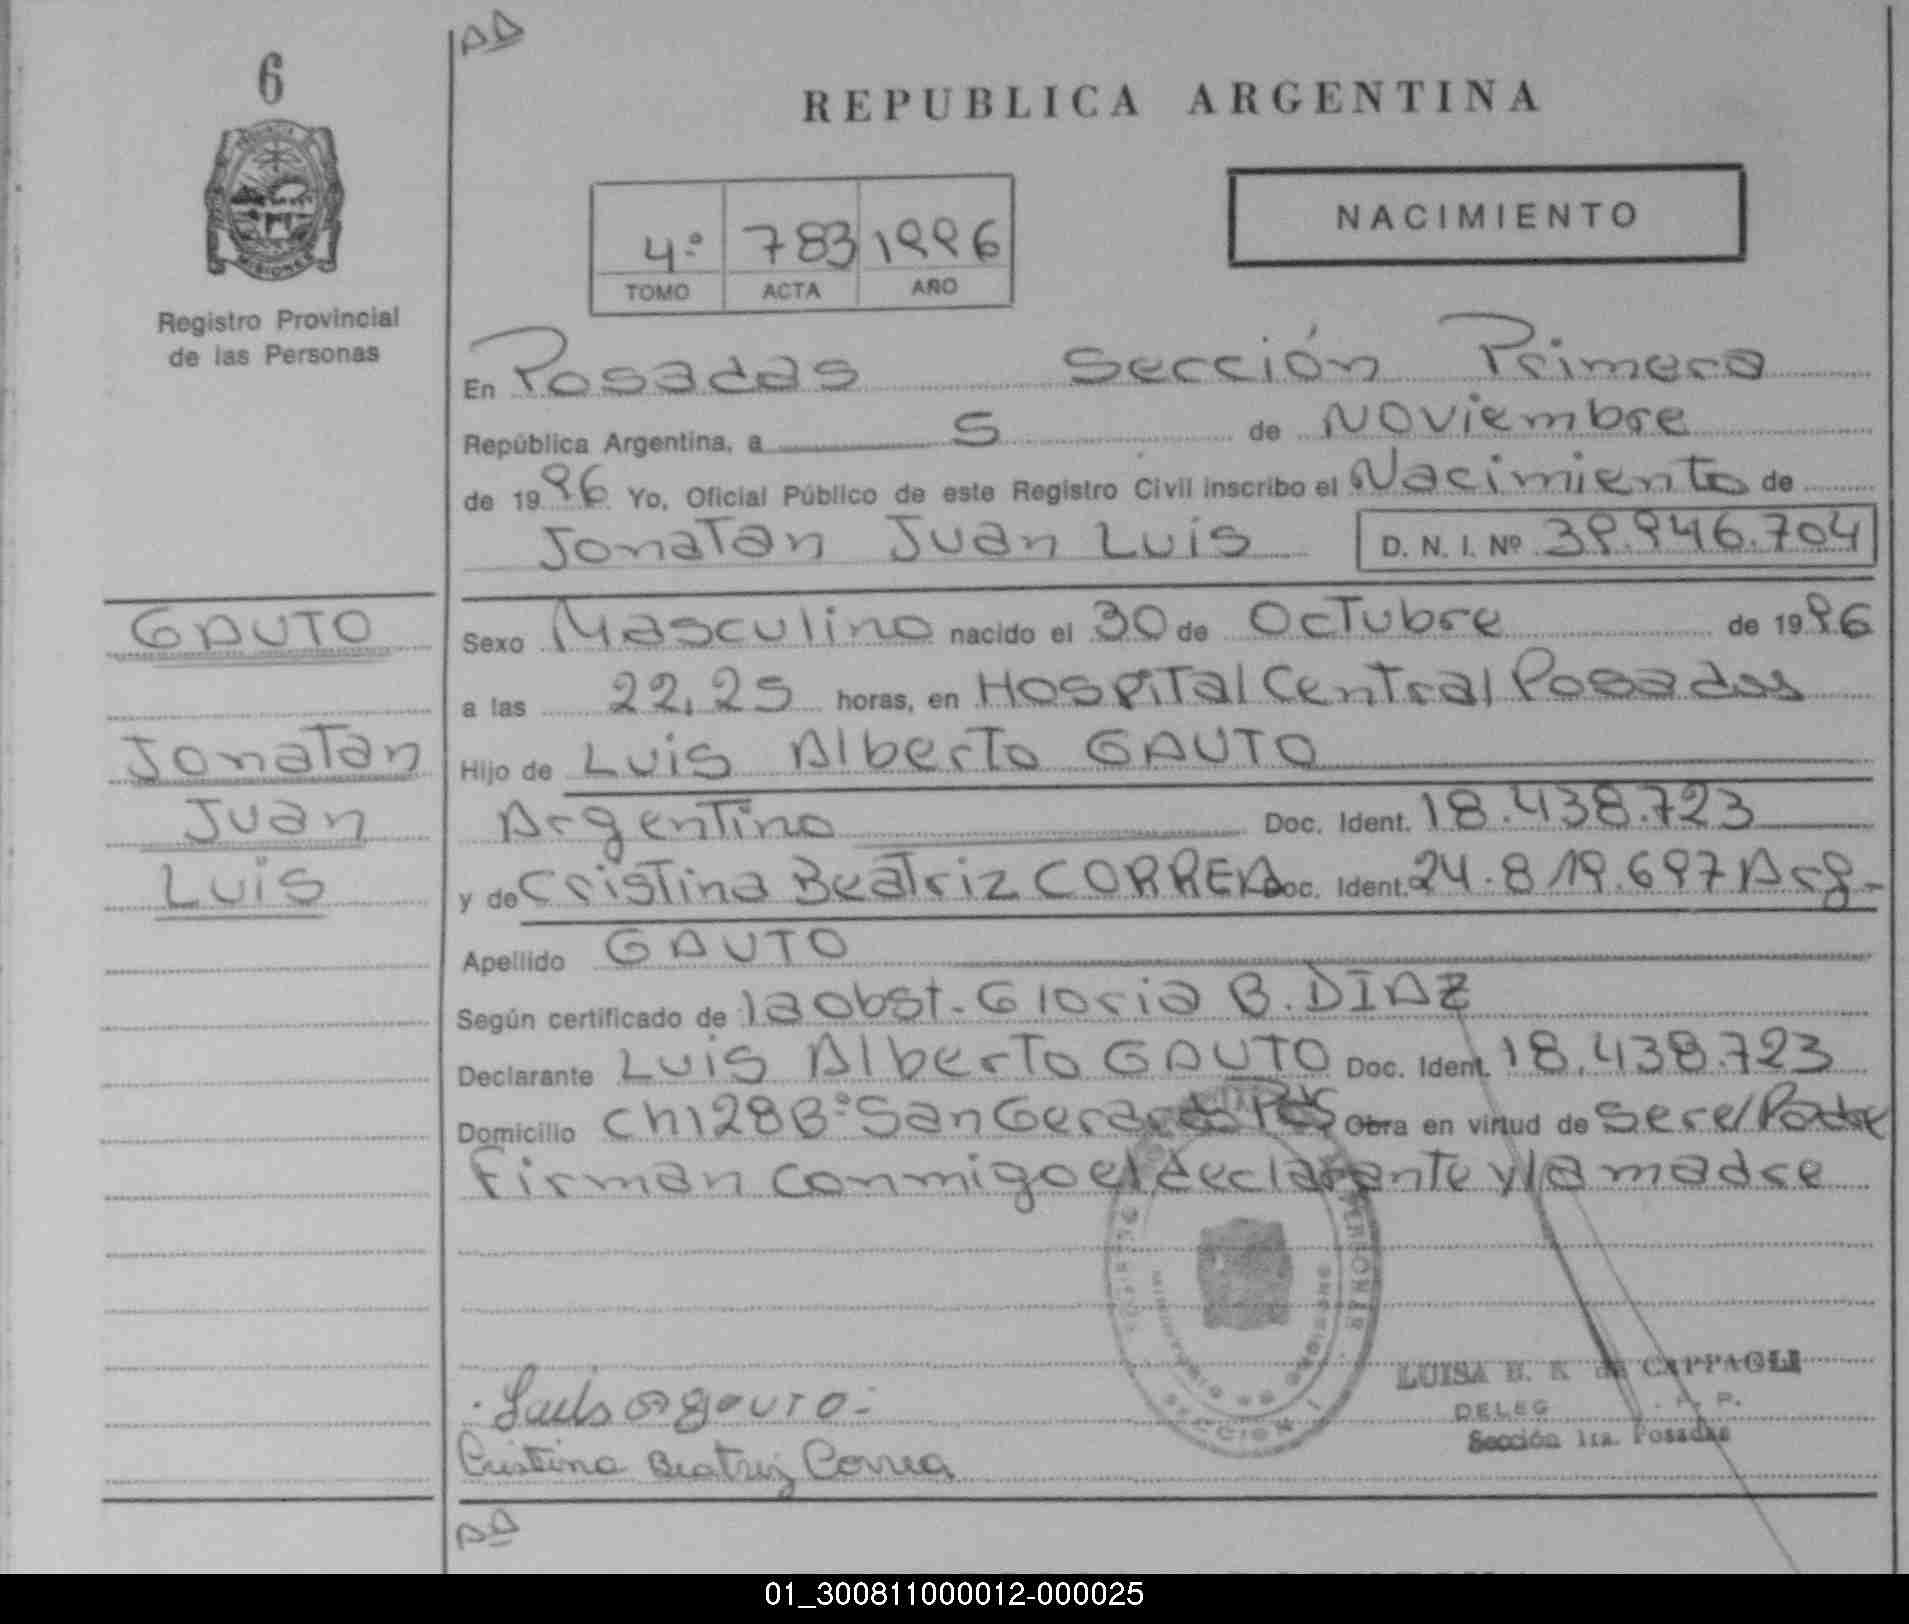 AA
6
REPUBLICA ARGENTINA
MISIONES
Registro Provincial
de las Personas
4º 783 1996
TOMO ACTA AÑO
NACIMIENTO
En Posadas Sección Primera
República Argentina, a 5 de Noviembre
de 1996 Yo, Oficial Público de este Registro Civil inscribo el Nacimiento de
Jonatan Juan Luis D. N. I. Nº 39.946.704
GAUTO
Jonatan
Juan
Luis
Sexo Masculino nacido el 30 de Octubre de 1996
a las 22,25 horas, en Hospital Central Posadas
Hijo de Luis Alberto GAUTO
Argentino Doc. Ident. 18.438.723
y de Cristina Beatriz CORREA Doc. Ident. 24.819.697 Arg.
Apellido GAUTO
Según certificado de la obst. Gloria B. DIAZ
Declarante Luis Alberto GAUTO Doc. Ident. 18.438.723
Domicilio Ch 128 Bº San Gerardo Pdas Obra en virtud de ser el Padre
Firman conmigo el declarante y la madre
SECCION 1
LUISA de CAPPAGLI
DELEG
Sección 1ra. Posadas
Luis A gauto
Cristina Beatriz Correa
AA
01_300811000012-000025